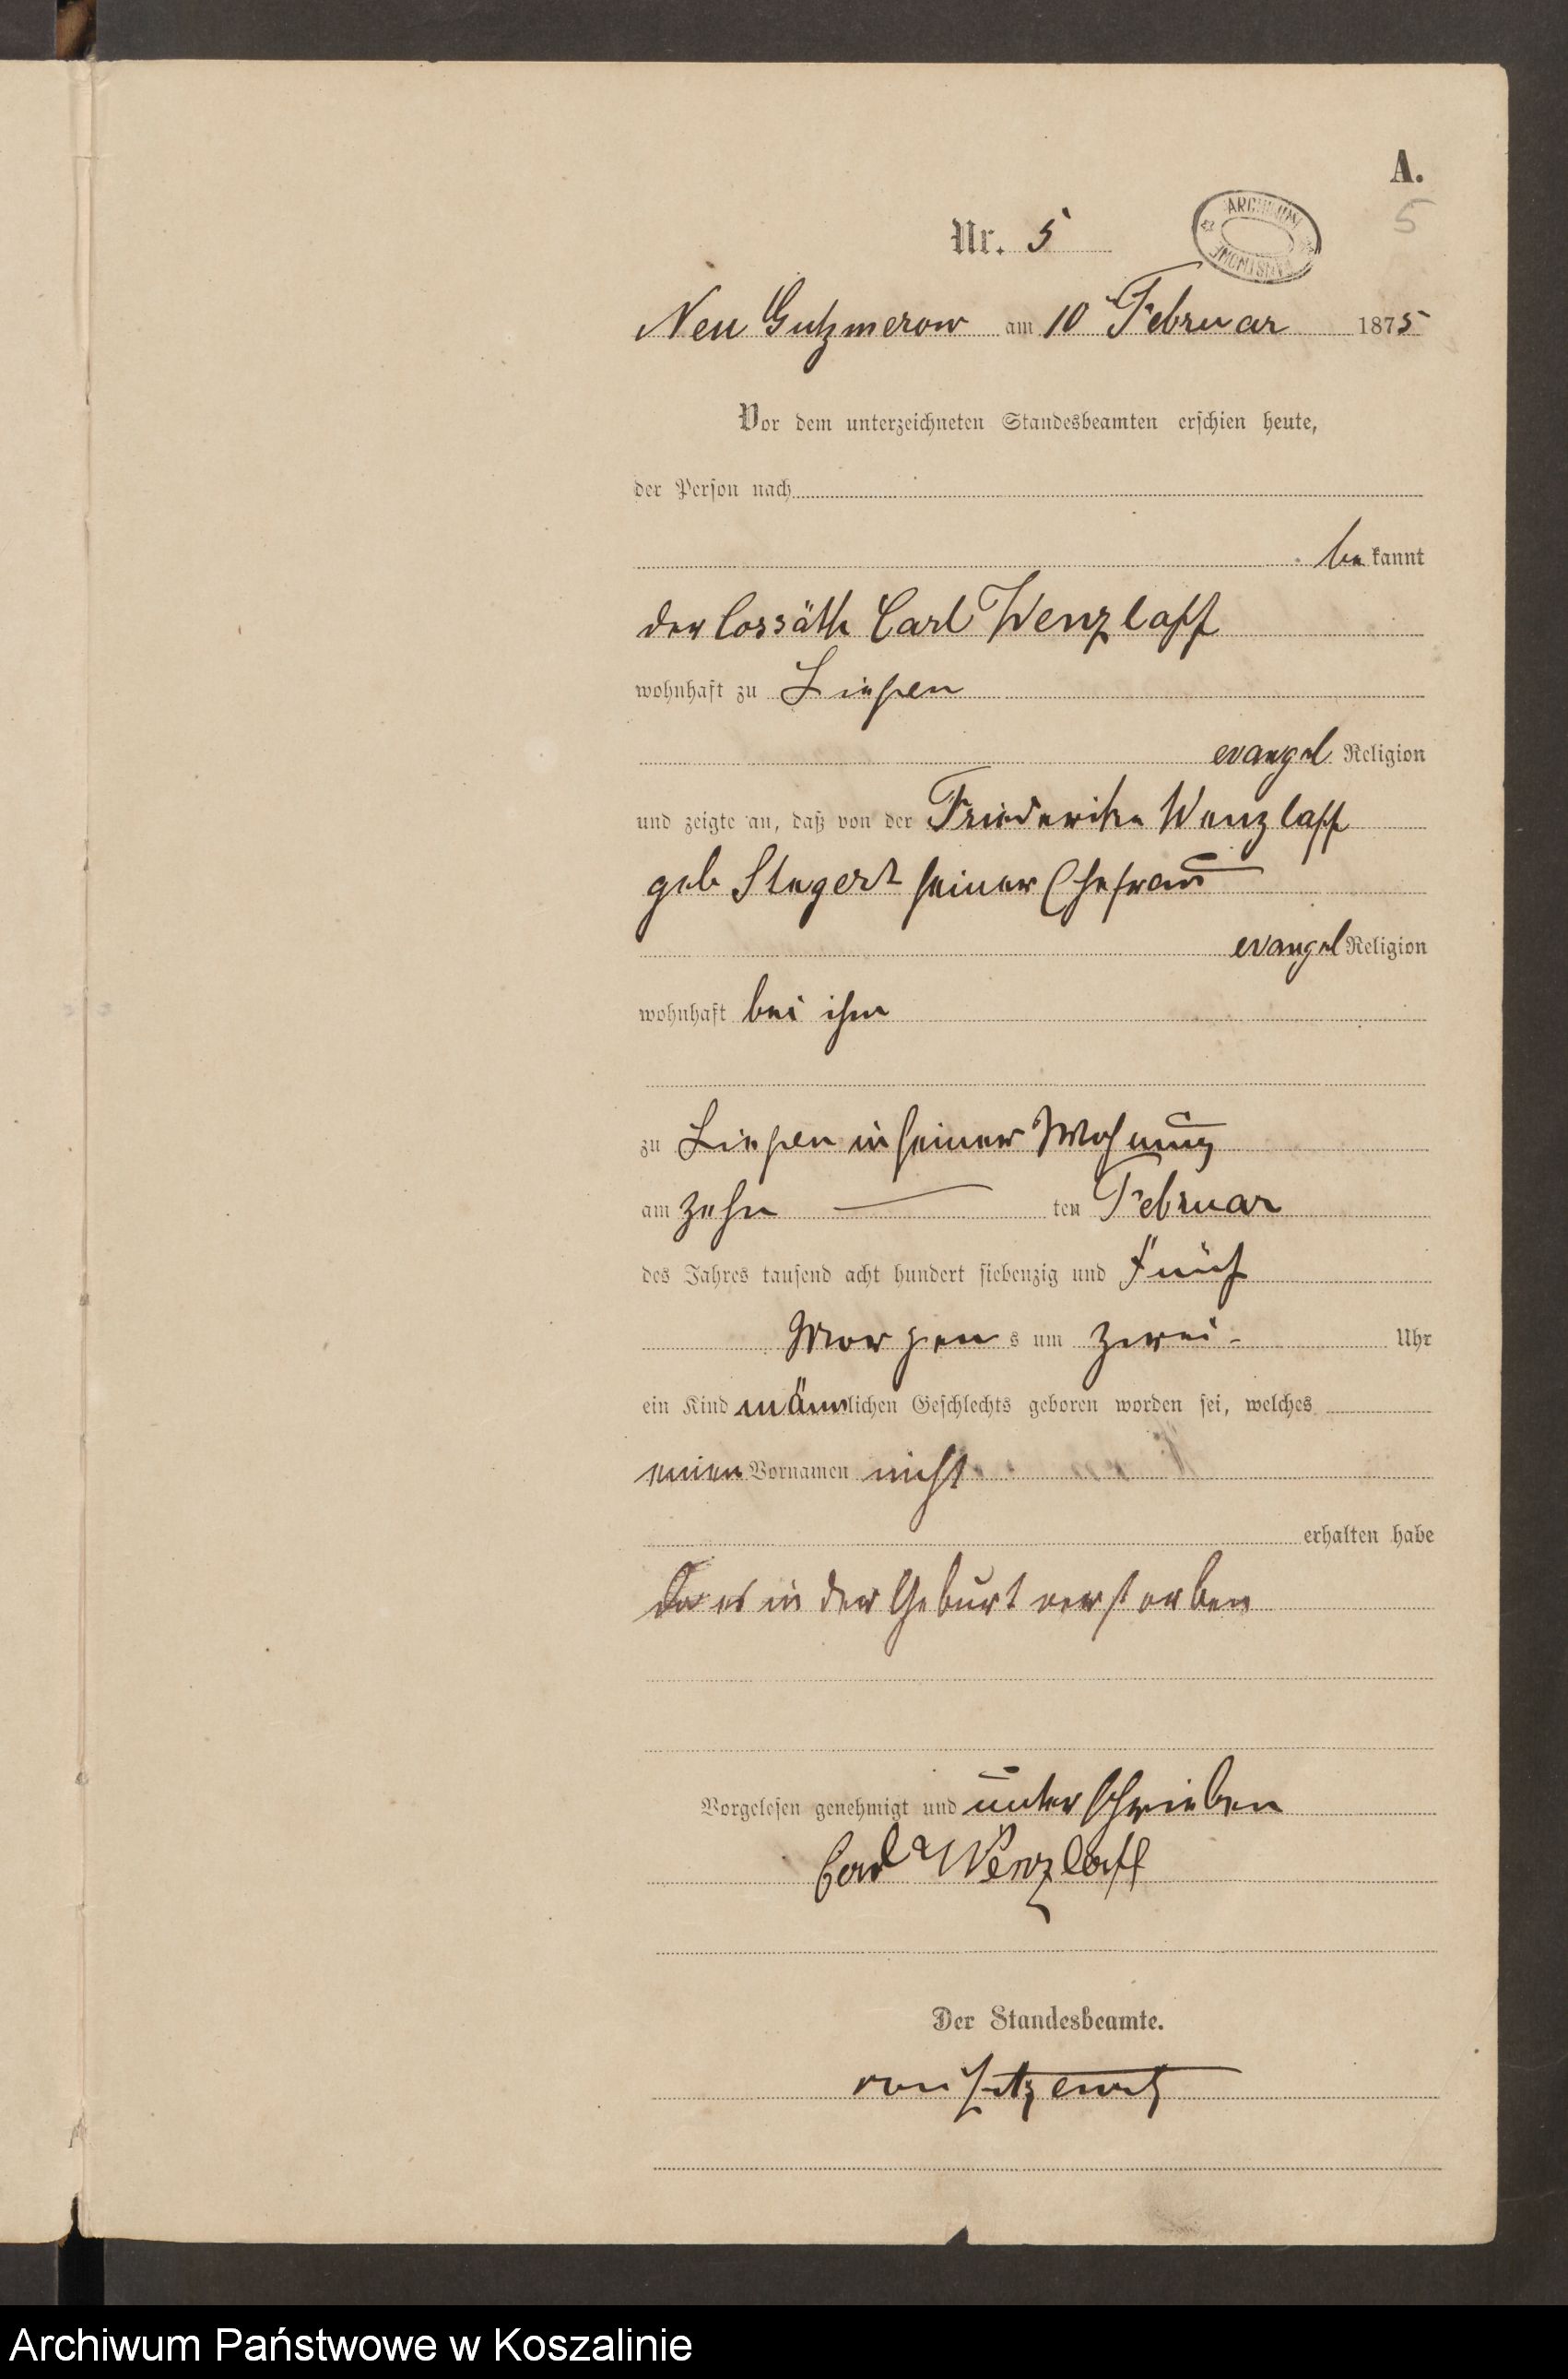 A.
5
Nr. 5
ARCHIWUM PAŃSTWOWE
Neu Gutzmerow am 10 Februar 1875
Vor dem unterzeichneten Standesbeamten erschien heute,
der Person nach
bekannt
der Cossäth Carl Wenzlaff
wohnhaft zu Liepen
evangel. Religion
und zeigte an, daß von der Friederike Wenzlaff
geb Stegert seiner Ehefrau
evangel Religion
wohnhaft bei ihm
zu Liepen in seiner Wohnung
am zehn ten Februar
des Jahres tausend acht hundert siebenzig und Fünf
Morgens um zwei Uhr
ein Kind männlichen Geschlechts geboren worden sei, welches
einen Vornamen nicht
erhalten habe
da es in der Geburt verstorben
Vorgelesen genehmigt und unterschrieben
Carl Wenzlaff
Der Standesbeamte.
von
Archiwum Państwowe w Koszalinie